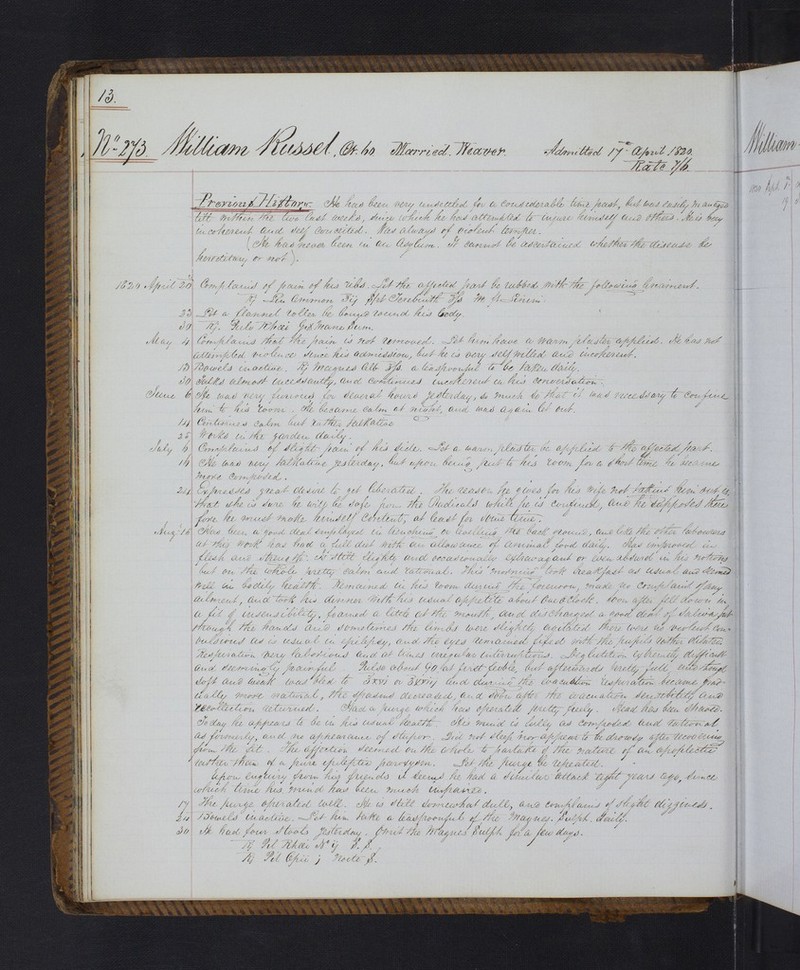 13.
No. 273. William Russel, Æt. 60 Married. Weaver. Admitted 17th April 1820.
Rate 7/6
William
Previous History. He has been very unsettled for a considerable time past, but was easily managed
till within the two last weeks, since which he has attempted to injure himself and others. He is very
incoherent and self conceited. Was always of violent temper.
(He has never been in an Asylum. It cannot be ascertained whether the disease be
hereditary or not).
1820 April 20 Complains of pain of his ribs. Let the affected part be rubbed with the following liniment.
22 Let a flannel roller be bound round his body.
May 4 Complains that the pain is not removed. Let him have a warm plaster applied. He has not
attempted violence since his admission, but he is very self willed and incoherent.
13 Bowels inactive. a teaspoonful to be taken daily.
30 Talks almost incessantly, and continues incoherent in his conversation.
June 6 He was very furious for several hours yesterday, so much so that it was necessary to confine
him to his room. He became calm at night, and was again let out.
14 Continues calm but rather talkative
25 Works in the garden daily.
July 6 Complains of slight pain of his side. Let a warm plaster be applied to the affected part.
16 He was very talkative yesterday, but upon being put to his room for a short time he became
more composed.
24 Expresses great desire to get liberated. The reason he gives for his wife not taking him out, is
that she is sure he will be safe from the Radicals while he is confined, and he supposes there
fore he must make himself content, at least for some time.
Aug. 16 Has been a good deal employed in trenching or levelling the back ground, and like the other labourers
at this work has had a full diet with an allowance of animal food daily. Has improved in
flesh and strength. Is still flighty and occasionally extravagant or even absurd in his notions
but on the whole pretty calm and rational. This morning took breakfast as usual and seemed
well in bodily health. Remained in his room during the forenoon, made no complaint of any
ailment, and took his dinner with his usual appetite about One o'clock. Soon after fell down in
a fit of insensibility, foamed a little at the mouth, and discharged a good deal of saliva; but
though the hands and sometimes the limbs were slightly agitated there were no violent con-
vulsions as is usual in epilepsy, and the eyes remained fixed with the pupils rather dilated
Respiration very laborious and at times irregular interruptions. Deglutition extremely difficult
and seemingly painful. Pulse about 90 at first feeble, but afterwards pretty full, and though
soft and weak was bled to and during the evacuation respiration became grad-
ually more natural, the spasms decreased, and soon after the evacuation sensibility and
recollection returned. Had a purge which has operated pretty freely. Head has been shaved.
Today he appears to be in his usual health. His mind is fully as composed and rational
as formerly, and no appearance of stupor. Did not sleep nor appear to be drowsy after recovering
from the fit. The affection seemed on the whole to partake of the nature of an apoplectic
rather than of a pure epileptic paroxysm. Let the purge be repeated.
Upon enquiry from his friends it seems he had a similar attack eight years ago, since
which time his mind has been much impaired.
17 The purge operated well. He is still somewhat dull, and complains of slight dizziness.
24 Bowels inactive. Let him take a teaspoonful of the Magnes. Sulph. daily.
30 He had four stools yesterday. Omit the Magnes Sulph. for a few days.